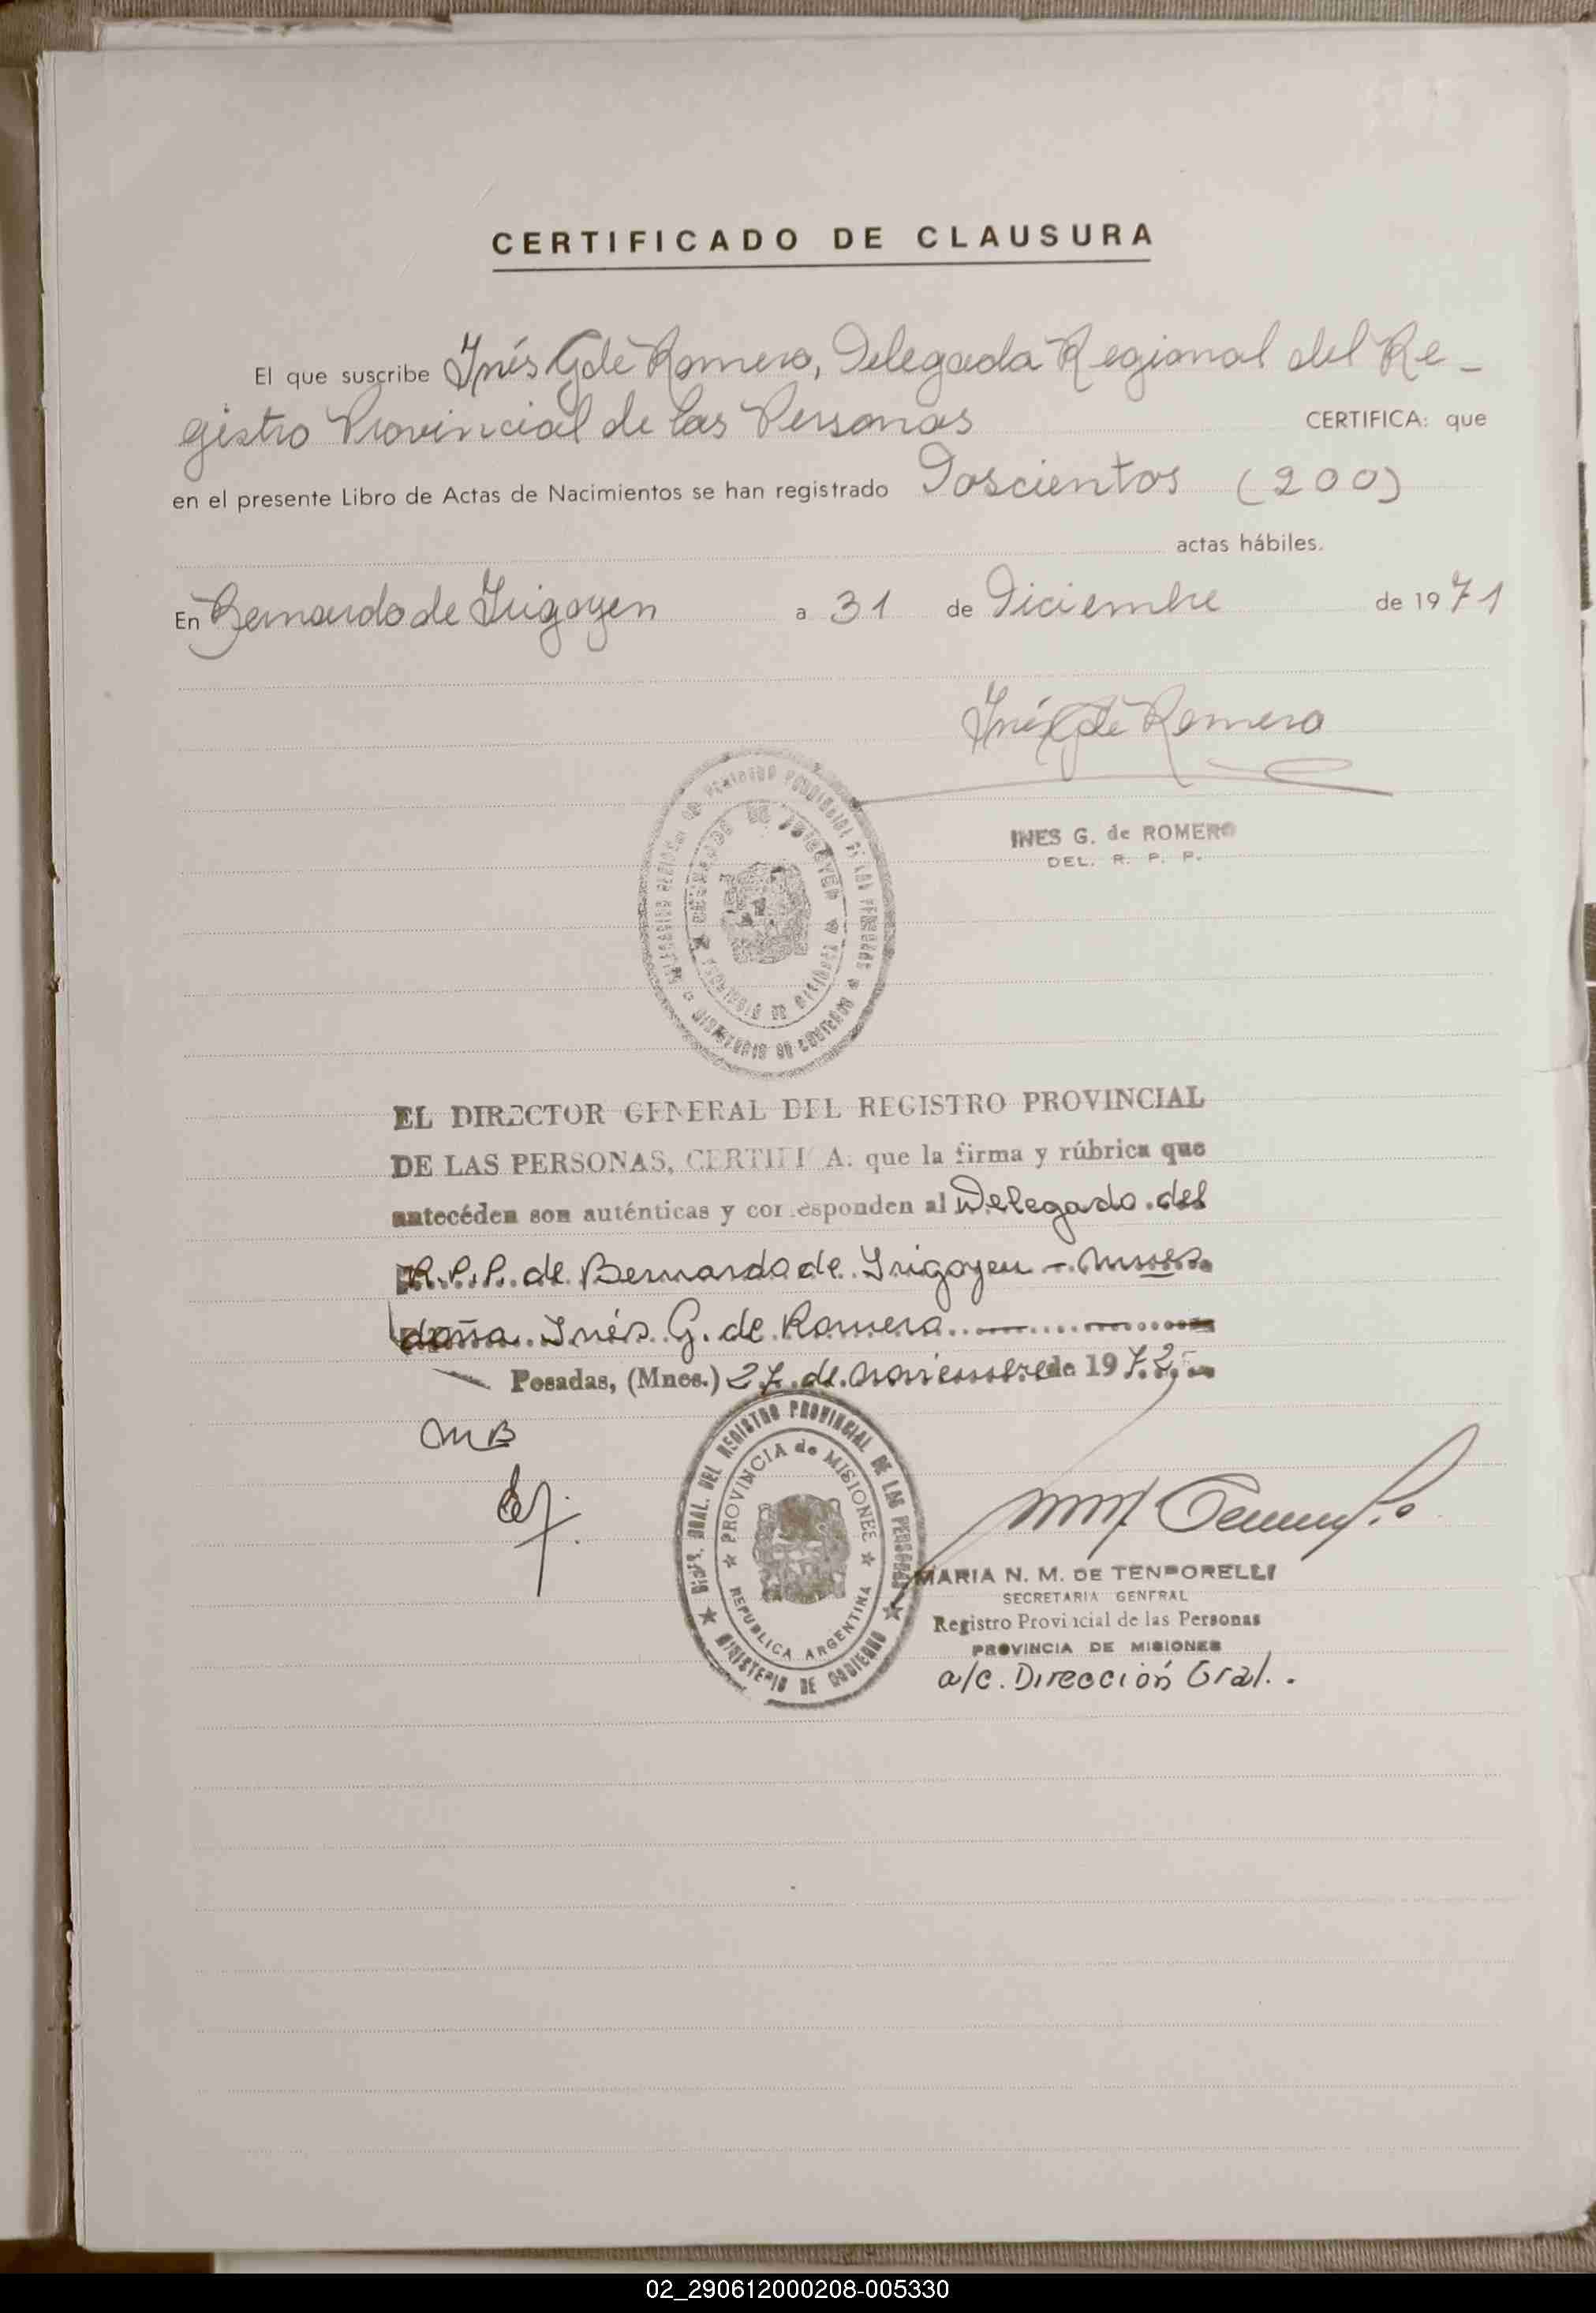 CERTIFICADO DE CLAUSURA
El que suscribe Inés G de Romero, Delegada Regional del Re-
gistro Provincial de las Personas CERTIFICA: que
en el presente Libro de Actas de Nacimientos se han registrado Doscientos (200)
actas hábiles.
En Bernardo de Irigoyen a 31 de Diciembre de 1971
Inés G de Romero
INES G. de ROMERO
DEL. R. P. P.
EL DIRECTOR GENERAL DEL REGISTRO PROVINCIAL
DE LAS PERSONAS, CERTIFICA: que la firma y rúbrica que
antecéden son auténticas y corresponden al Delegado del
R.P.P. de Bernardo de Irigoyen -
doña Inés G. de Romero
Posadas, (Mnes.) 27 de noviembre de 1972
MB
DIR. GRAL. DEL REGISTRO PROVINCIAL DE LAS PERSONAS
PROVINCIA de MISIONES
REPUBLICA ARGENTINA
MINISTERIO DE GOBIERNO
MARIA N. M. DE TEMPORELLI
SECRETARIA GENERAL
Registro Provincial de las Personas
PROVINCIA DE MISIONES
a/c. Dirección Gral.
02_290612000208-005330